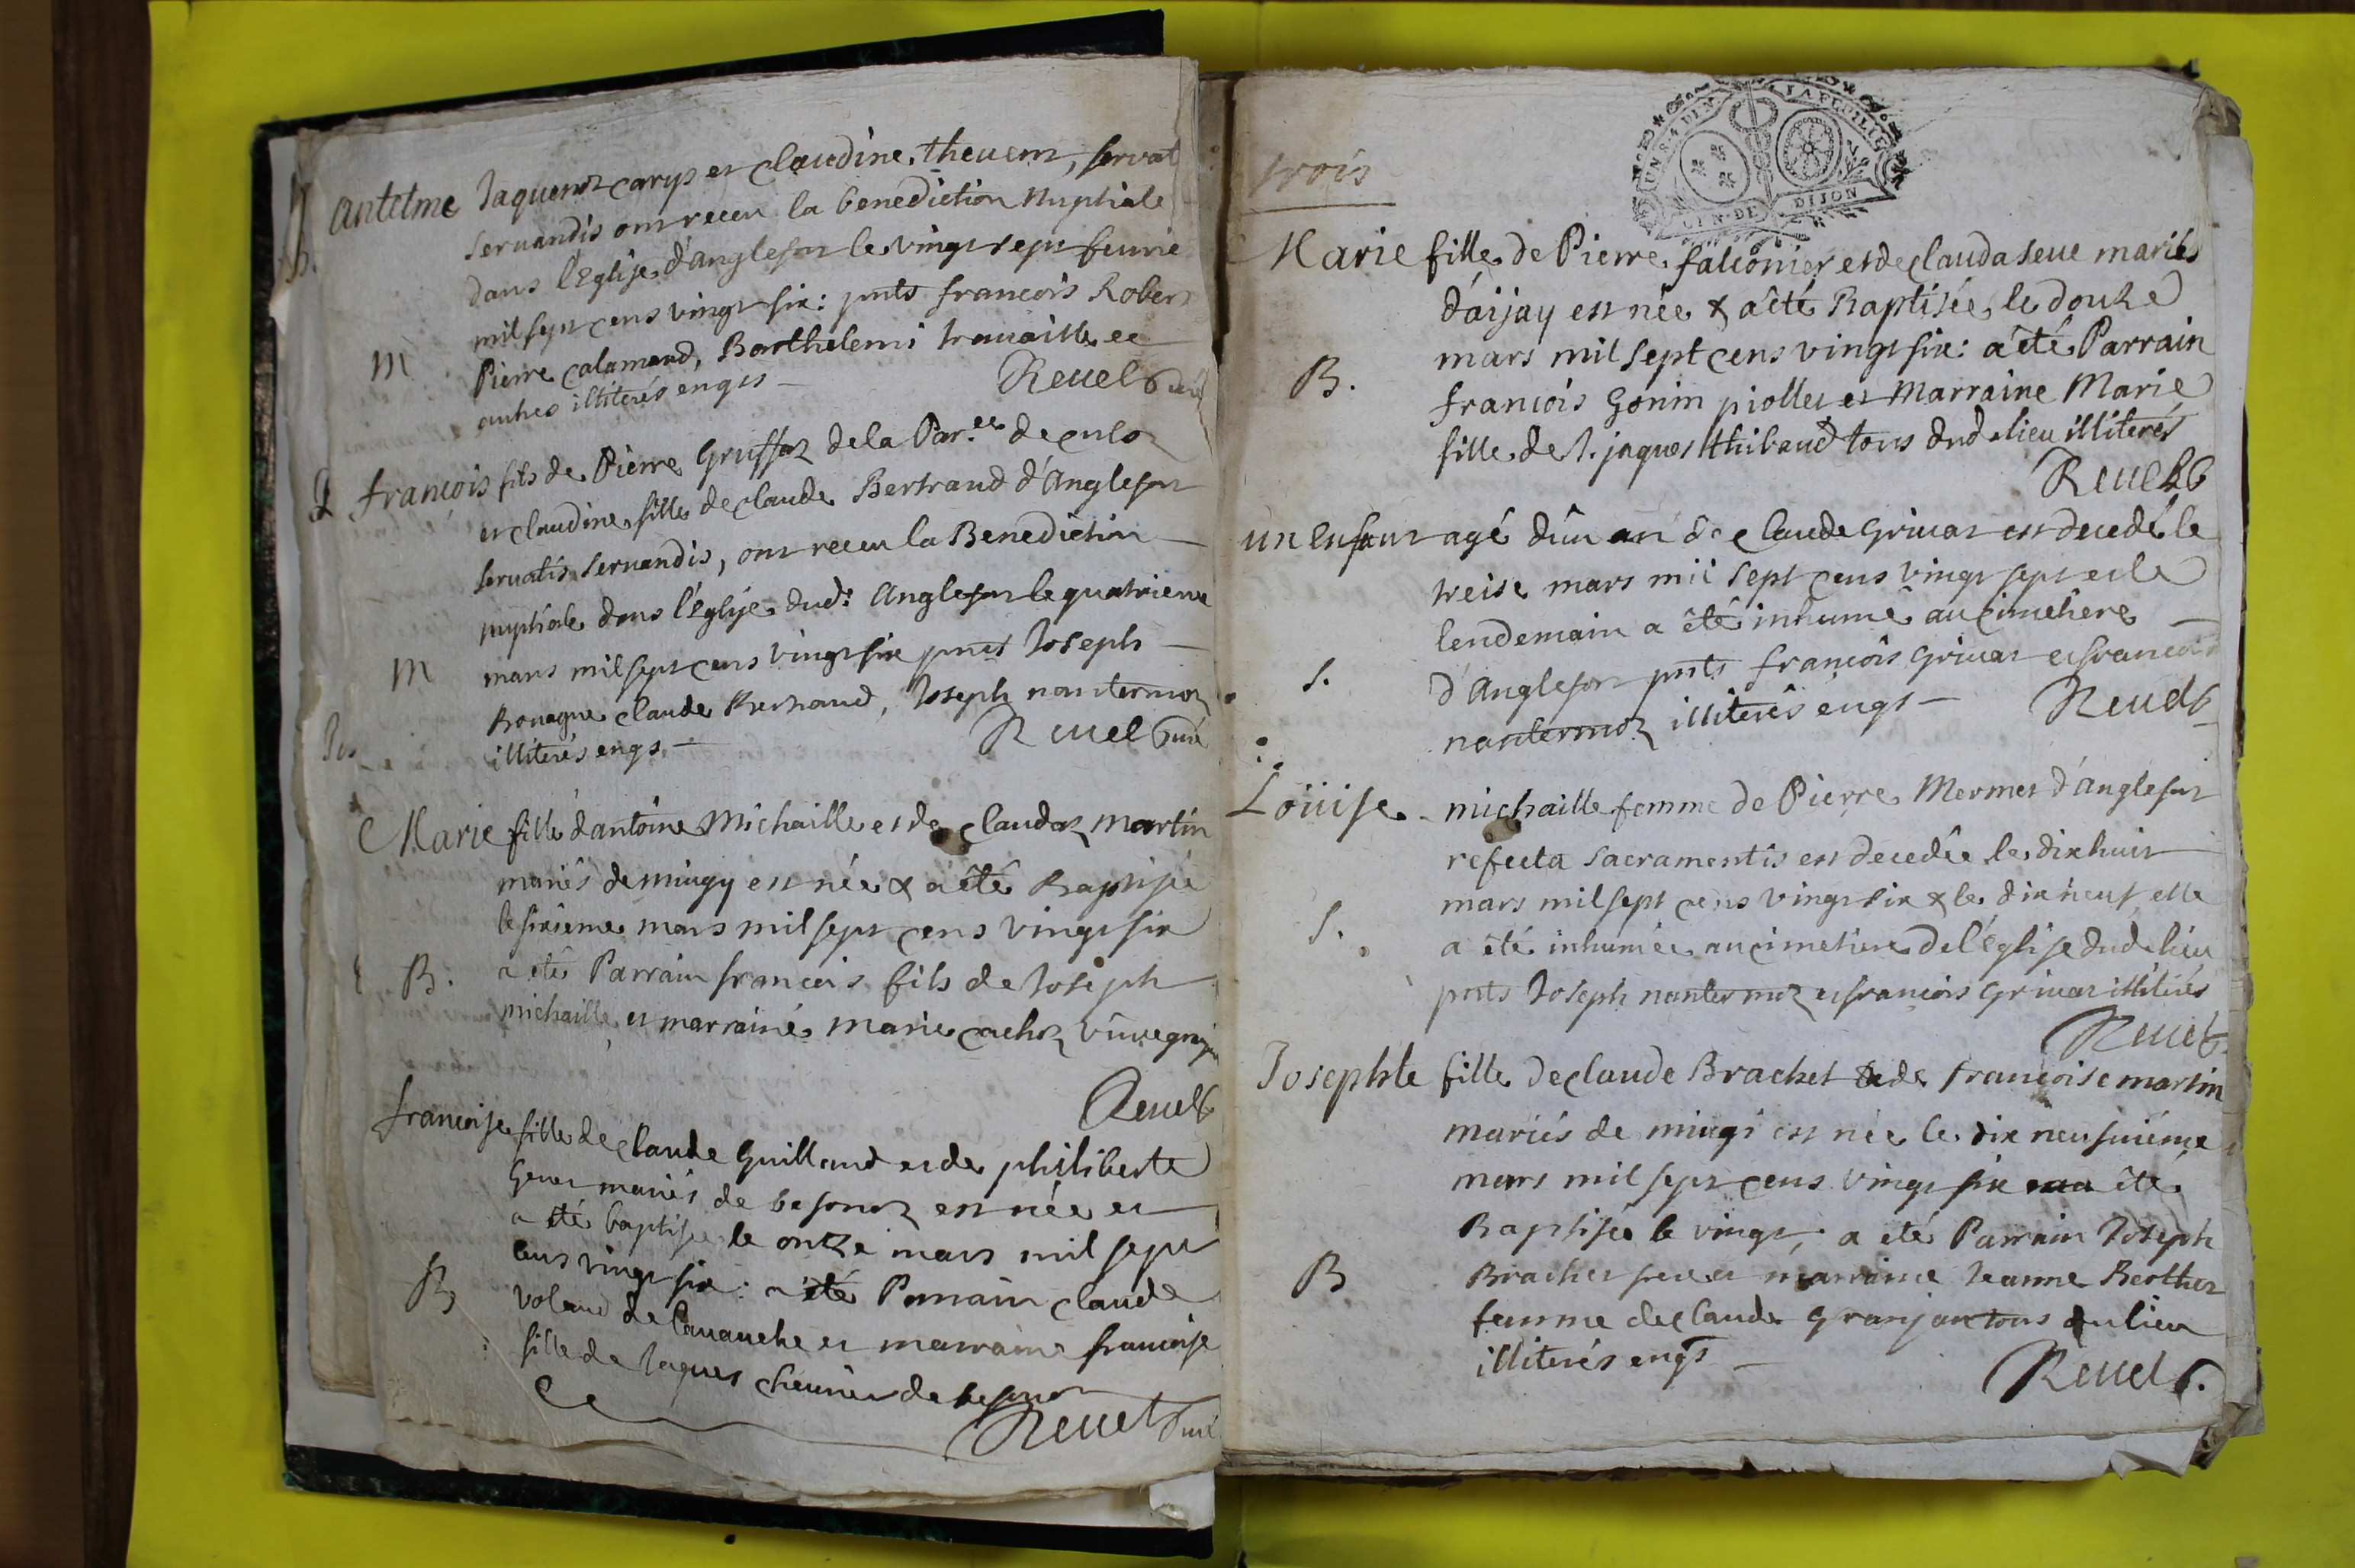 Antelme Jaquenoz carys et claudine thevem, servat
servandis ont receu la benediction nuptiale
dans l'Eglise d'anglefor le vingt sept fevrie
mil sept cens vingt six: pnts francois Robert
M
Pierre calamand, Barthelemi travaille et
autres illiterés enqis — Revel Curé
françois fils de Pierre Gruffaz de la Par.ee de culoz
et claudine fille de claude Bertrand d'Anglefort
servatis servandis, ont receu la Benediction
nuptiale dans l'Eglise dud: Anglefort le quatrieme
M
mars mil sept cens vingt six pnts Joseph
Bonagne claude Bertrand, Joseph nantermoz
illiterés enqs — Revel Curé
Marie fille d'antoine Michaille et de claudaz martin
mariés de mingy est née & a été Baptisée
le sixieme mars mil sept cens vingt six
B.
a été Parrain francois fils de Joseph
michaille et marraine marie cachoz
Revel C
francoise fille de claude Guilland et de philiberte
Gener mariés de besonoz est née et
a été baptisée le onze mars mil sept
cens vingt six: a été Parrain claude
B
voland de Lavanche et marraine francoise
fille de Jaques chevrier de besonoz
Revel Curé
trois
UN S. 4 DEN. LA FEUILLE
GEN. DE DIJON
Marie fille de Pierre falconier et de clauda seve mariés
d'arjay est née & a été Baptisée le douze
mars mil sept cens vingt six: a été Parrain
B.
francois Gonin piollet et Marraine Marie
fille de h. jaques thibaud tous dud. lieu illiterés
Revel C
un enfant agé d'un an de claude Grivaz est decedé le
treise mars mil sept cens vingt sept et le
lendemain a été inhumé au cimetiere
S.
d'Anglefort pnts françois Grivaz et francois
nantermoz illiterés enqs — Revel C
Loüise michaille femme de Pierre Mermet d'anglefort
refecta sacramentis est decedée le dix huit
mars mil sept cens vingt six & le dix neuf elle
S.
a été inhumée au cimetiere de l'église dud. lieu
pnts Joseph nantermoz et francois Grivaz illiterés
Revel C
Josephte fille de claude Brachet & de francoise martin
mariés de mingi est née le dix neufvieme
mars mil sept cens vingt six a été
Baptisée le vingt, a été Parrain Joseph
B
Brachet frere et marraine Jeanne Berthet
femme de claude Granjan tous du lieu
illiterés enqs — Revel C.